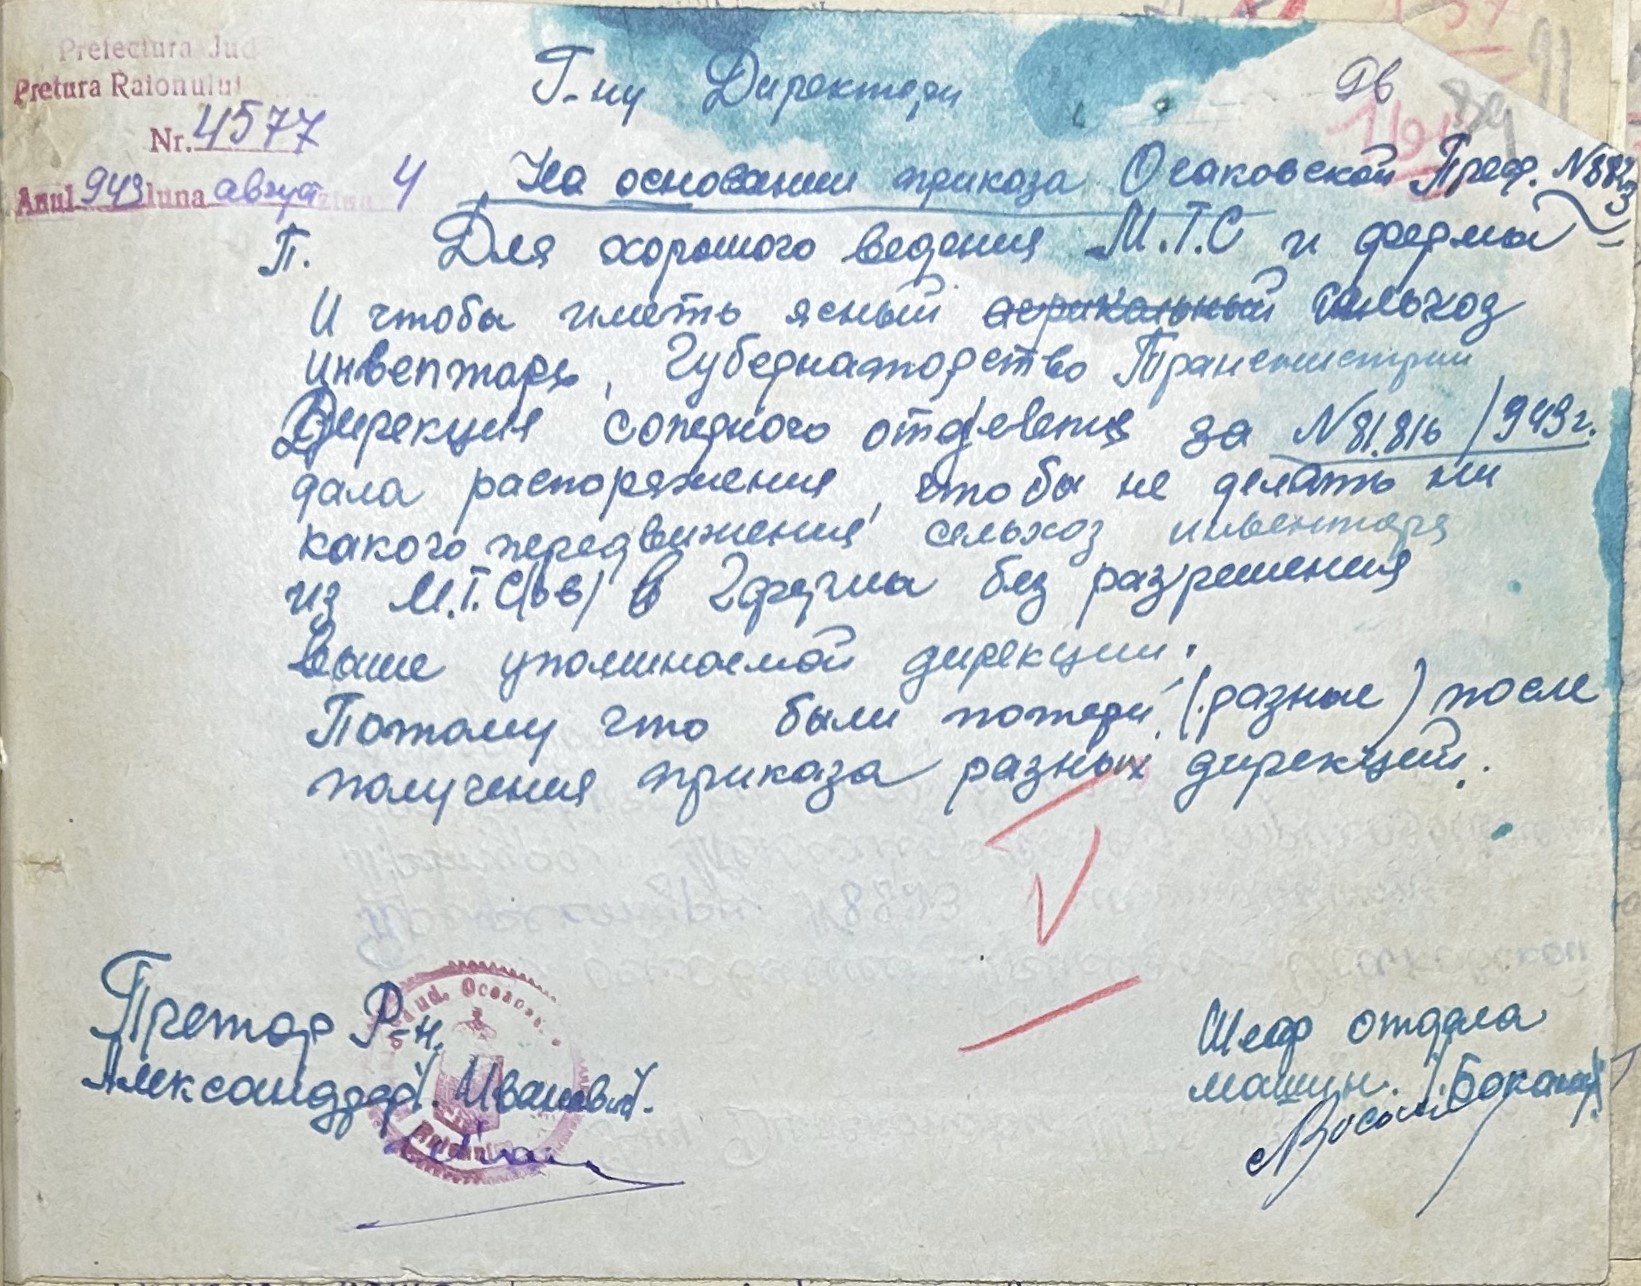 Prefectura Jud
Pretura Raionului
Nr. 4577
Anul 943 luna август ziua 4
Г-ну Директери
На основании приказа Очаковской Преф. N 882
П. Для хорошого ведения М.Т.С и фермы
И чтобы иметь ясный сельхоз
инвентарь, Губернаторство Транснистрии
Дирекция за N 81.816/943г.
дала распоряжения, чтобы не делать ни
какого передвижения сельхоз инвентаря
из М.Т.С(ов) в ферма без разрешения
выше упоминаемой дирекции.
Потому что были потери (разные) после
получения приказа разных дирекций.
Претор Р-н.
Александр Иванов
Шеф отдела
машин.